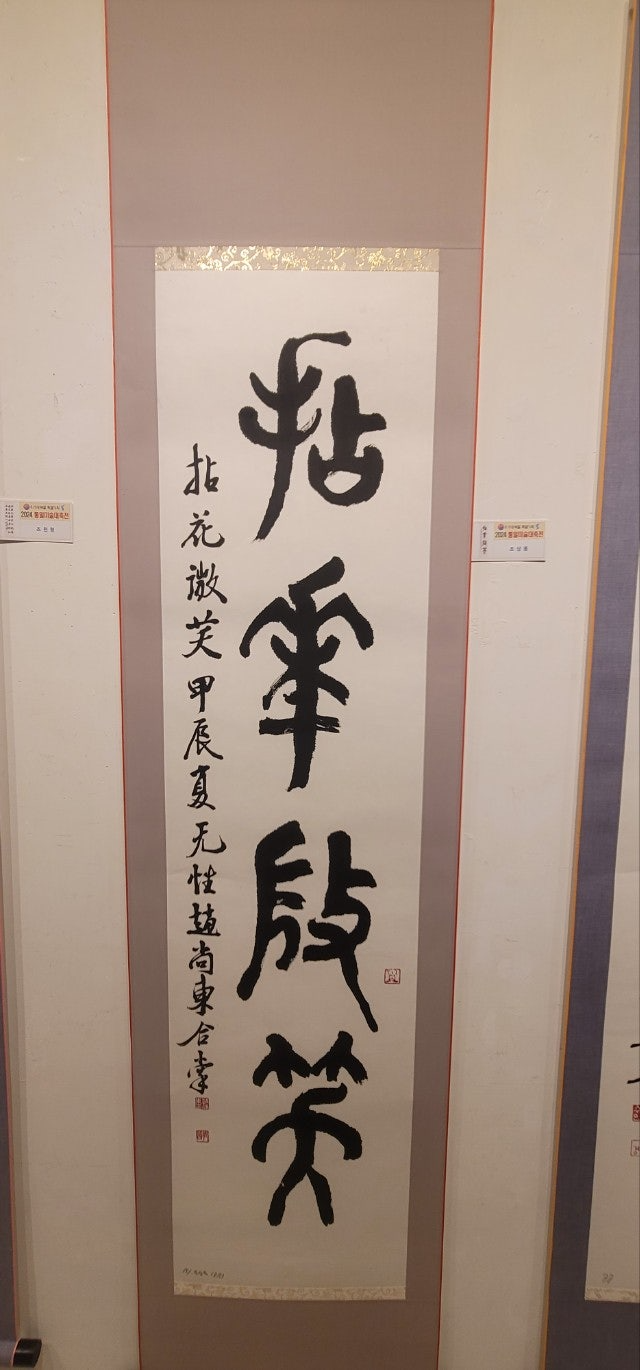 拈華微笑
拈花微笑甲辰夏无性趙尚東合掌
2024 통일미술대축전
2024 통일미술대축전
조상동